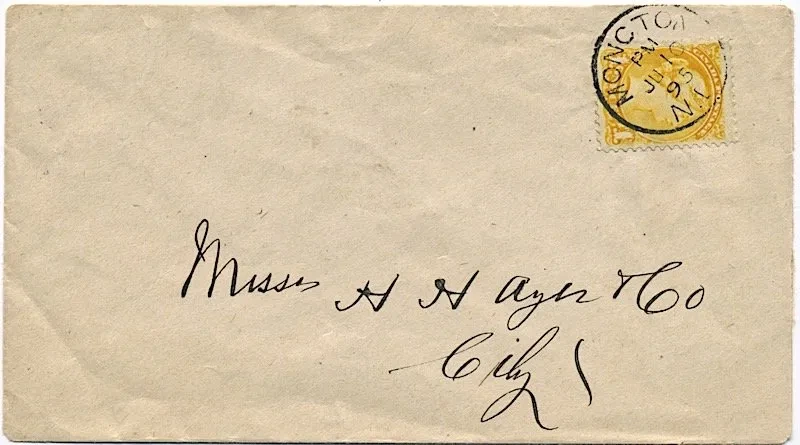 MONCTON
PM
JU 10
95
Messrs H H Ayer & Co
City